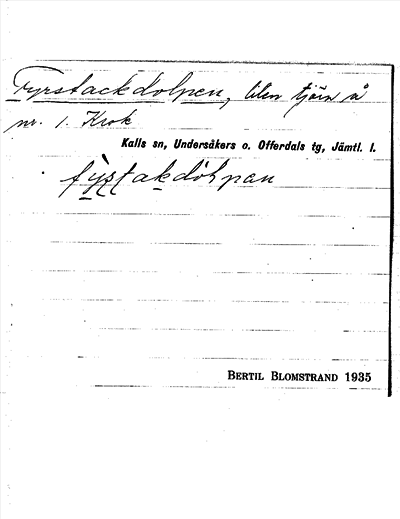 Fyrstackdolpen, liten tjärn å
nr. 1. Krok
Kalls sn, Undersåkers o. Offerdals tg, Jämtl. l.
fy̆s̲t̲ak̲dòlpan
BERTIL BLOMSTRAND 1935